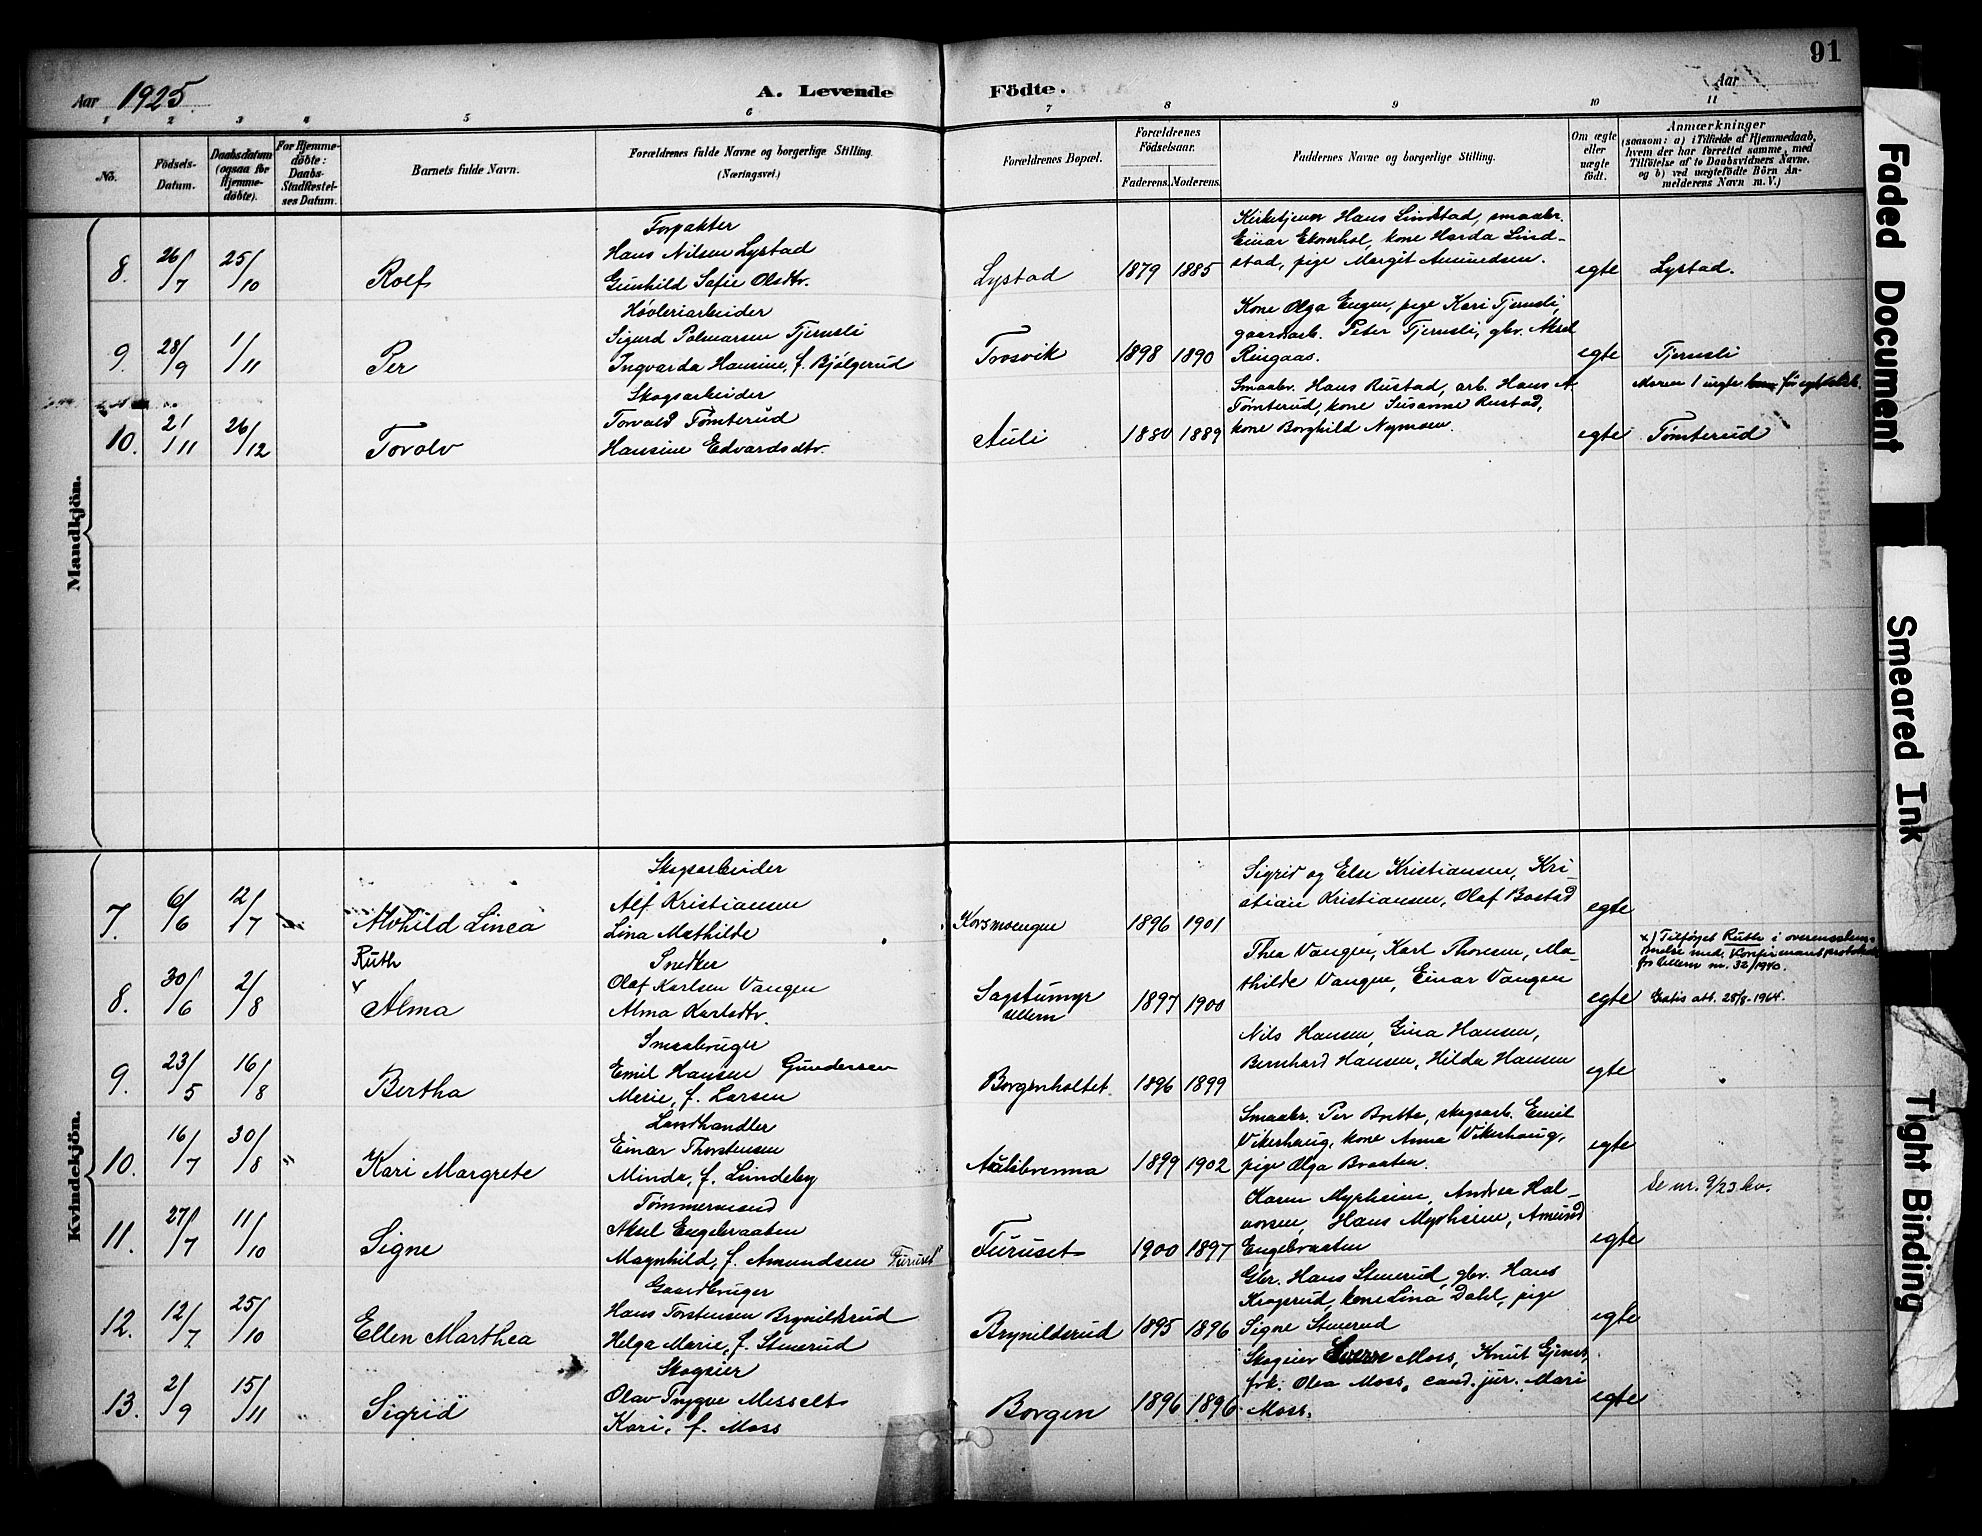 91
Aar 1925.
A. Levende Födte.
Aar
1 2 3 4 5 6 7 8 9 10 11
No.
Födsels-Datum.
Daabsdatum (ogsaa for Hjemmedöbte).
For Hjemmedöbte: Daabs-Stadfæstelses Datum.
Barnets fulde Navn.
Forældrenes fulde Navne og borgerlige Stilling.
(Næringsvei.)
Forældrenes Bopæl.
Forældrenes Födselsaar.
Faderens. Moderens.
Faddernes Navne og borgerlige Stilling.
Om ægte eller uægte födt.
Anmærkninger
(saasom: a) i Tilfælde af Hjemmedaab,
hvem der har forrettet samme, med
Tilföielse af to Daabsvidners Navne.
og b) ved uægtefödte Börn An-
melderens Navn m. V.)
Mandkjön.
8. 26/7 25/10 Rolf
Forpakter
Hans Nilsen Lystad
Gunhild Sofie Olsdtr.
Lystad 1879 1885
Kirketjener Hans Lindstad, smaabr.
Einar Ekornhol, kone Harda Lind-
stad, pige Margit Amundsen.
egte Lystad.
9. 28/9 1/11 Per
Høvleriarbeider
Sigurd Palmarsen Tjernsli
Ingvarda Hansine, f. Bjølgerud
Torsvik 1898 1890
Kone Olga Engen, pige Kari Tjernsli,
gaardarb. Peter Tjernsli, gbr. Aksel
Ringaas.
egte Tjernsli
10. 2/11 26/12 Torolv
Skogsarbeider
Torvald Tømterud
Hansine Edvardsdtr.
Auli 1880 1889
Smaabr. Hans Rustad, arb. Hans A
Tømterud, kone Susanne Rustad,
kone Borghild Nymoen.
egte
Moren 1 uegte
Tømterud
Kvindekjön.
7. 6/6 12/7 Alvhild Linea
Skogsarbeider
Alf Kristiansen
Lina Mathilde
Korsmoengen 1896 1901
Sigrid og Else Kristiansen, Kri-
stian Kristiansen, Olaf Bostad
egte
8. 30/6 2/8 Ruth
Alma
Snedker
Olaf Karlsen Vangen
Alma Karlsdtr.
Sagstumyr
Ullern
1897 1900
Thea Vangen, Karl Thoresen, Ma-
thilde Vangen, Einar Vangen
egte
x) Tilføyet Ruth i overensstem-
melse med Konfirmantprotokoll
for Ullern nr. 32/1940.
Gratis att. 28/8-1964.
9. 23/5 16/8 Bertha
Smaabruger
Emil Hansen Gundersen
Merie, f. Larsen
Borgenholtet. 1896 1899
Nils Hansen, Gina Hansen,
Bernhard Hansen, Hilda Hansen
egte
10. 16/7 30/8 Kari Margrete
Landhandler
Einar Thorstensen
Minda, f. Lundeby
Aulibrenna 1899 1902
Smaabr. Per Bratte, skogsarb. Emil
Vikerhaug, kone Anna Vikerhaug,
pige Olga Braaten.
egte
Se nr. 9/23 kv.
11. 27/7 11/10 Signe
Tømmermand
Aksel Engebraaten
Magnhild, f. Amundsen Furuset
Furuset 1900 1897
Karen Myrheim, Andrea Hal-
vorsen, Hans Myrheim, Amund
Engebraaten
egte
12. 12/7 25/10 Ellen Marthea
Gaardbruger
Hans Torstensen Brynildsrud
Helga Marie, f. Stenerud
Brynildsrud 1895 1896
Gbr. Hans Stenerud, gbr. Hans
Krogsrud, kone Lina Dahl, pige
Signe Stenerud
egte
13. 2/9 15/11 Sigrid
Skogeier
Olav Trygve Messelt
Kari, f. Moss
Borgen 1896 1896
Skogeier Sverre Moss, Knut Gjems,
frk. Olea Moss, cand. jur. Mari
Moss.
egte
Faded Document
Smeared Ink
Tight Binding